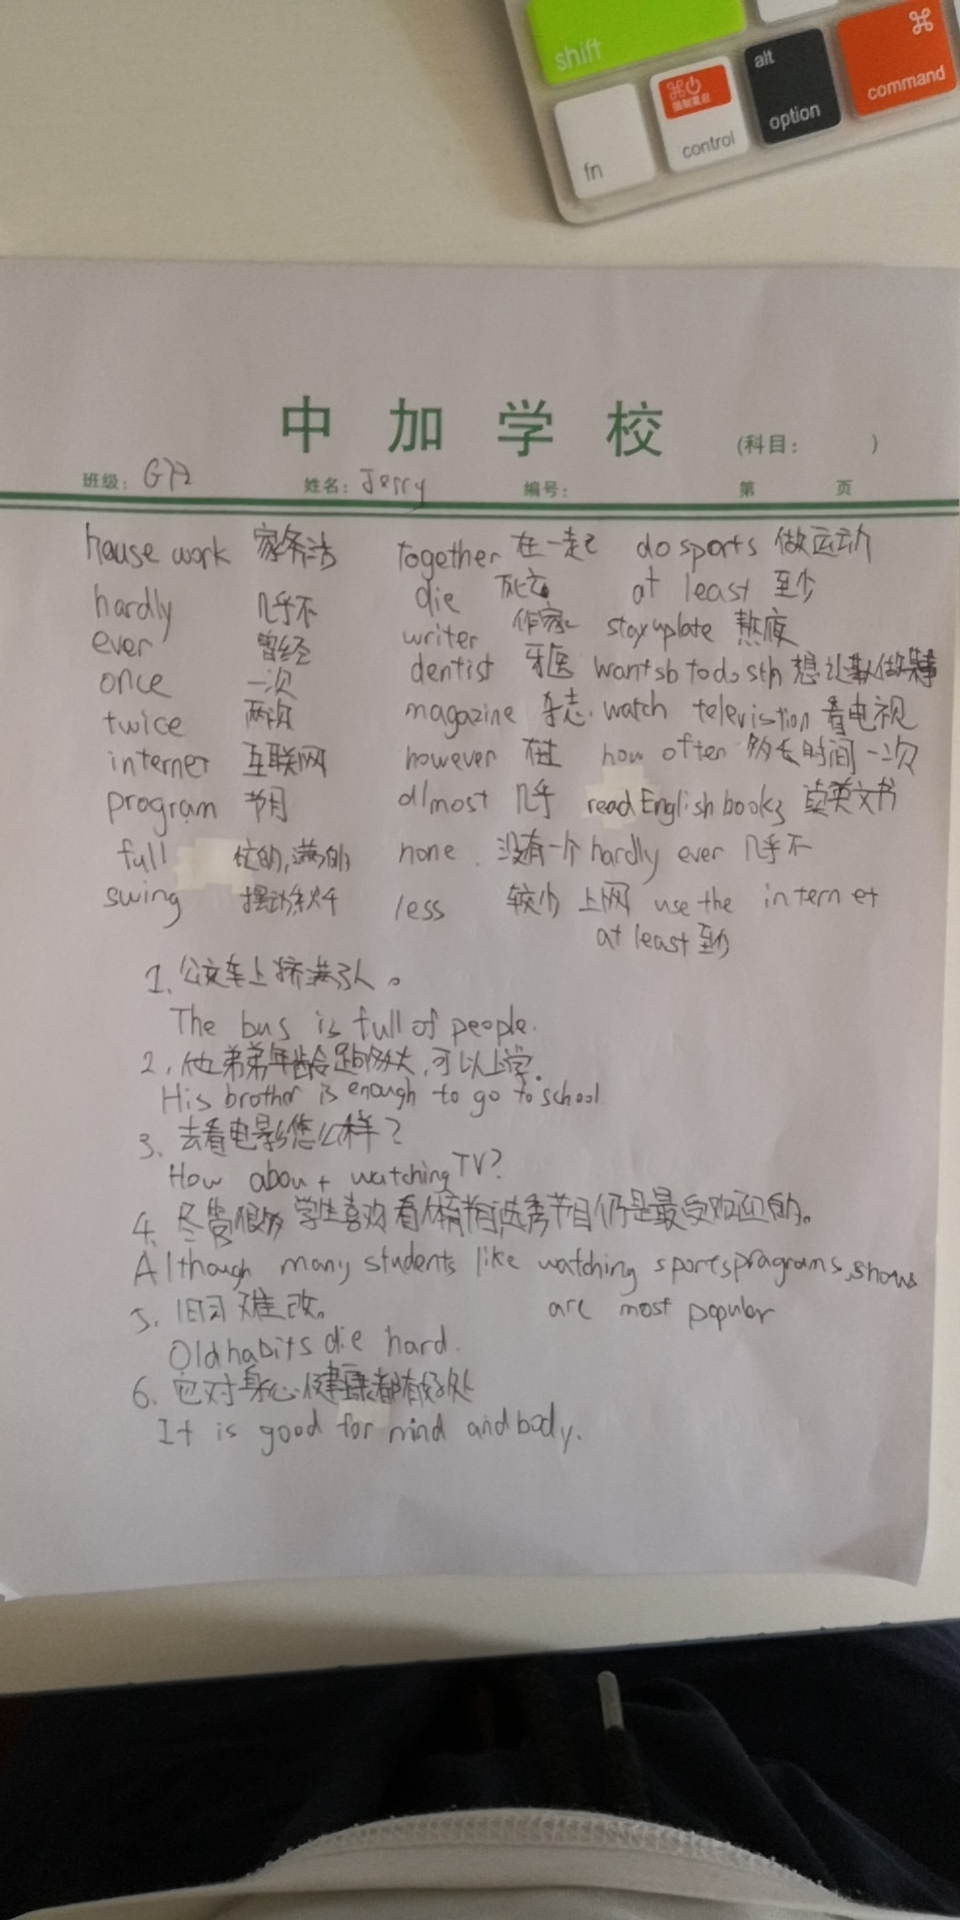 shift
fn
强制重启
control
alt
option
⌘
command
中加学校 (科目: )
班级: G72 姓名: Jerry 编号: 第 页
house work 家务活 together 在一起 do sports 做运动
hardly 几乎不 die 死亡 at least 至少
ever 曾经 writer 作家 stay uplate 熬夜
once 一次 dentist 牙医 want sb to do sth 想让某人做某事
twice 两次 magazine 杂志. watch televistion 看电视
internet 互联网 however how often 多长时间一次
program 节目 almost 几乎 read English books 读英文书
full 忙的,满的 none 没有一个 hardly ever 几乎不
swing 摆动秋千 less 较少 上网 use the internet
at least 至少
1. 公交车上挤满了人。
The bus is full of people.
2. 他弟弟年龄足够大,可以上学.
His brother is enough to go to school
3. 去看电影怎么样?
How about watching TV?
4. 尽管很多学生喜欢看体育节目,选秀节目仍是最受欢迎的。
Although many students like watching sports programs, shows
are most popular
5. 旧习难改。
Old habits die hard.
6. 它对身心健康都有好处
It is good for mind and body.